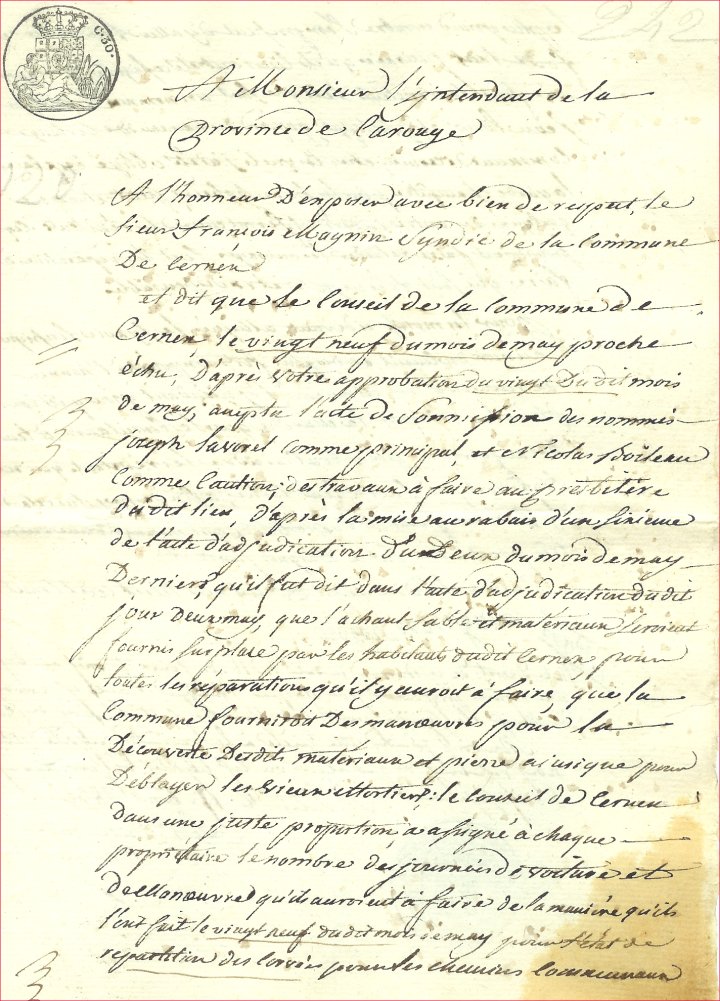 C. 30.
242
A Monsieur l'Intendant de la
Province de Carouge
A l'honneur D'exposer avec bien de respect, le
sieur françois Magnin Syndic de la Commune
De Cernex
et dit que le Conseil de la Commune de
Cernex, le vingt neuf du mois de may proche
échu, D'après votre approbation du vingt Dudit mois
de may, accepta l'acte de Soumission des nommés
joseph lavorel comme principal, et Nicolas Boileau
Comme Caution; des travaux à faire au presbitère
dudit lieu, d'après la mise au rabais d'un sixieme
de l'acte d'adjudication Du Deux du mois de may
Dernier, qu'il fut dit dans l'acte d'adjudication dudit
jour Deux may, que la chaux sable et matériaux seroient
fournis sur place par les habitants dudit Cernex pour
toutes les réparations qu'il y auroit à faire, que la
Commune fourniroit Des manœuvres pour la
Découverte Desdits matériaux et pierre ainsique pour
Déblayer les vieux : le Conseil de Cernex
dans une juste proportion, a assigné à chaque
propriétaire le nombre des journées de voiture et
de Manœuvre qu'ils auroient à faire de la manière qu'ils
l'ont fait le vingt neuf dudit mois de may pour l'état de
repartition des Corvées pour les chemins Communaux